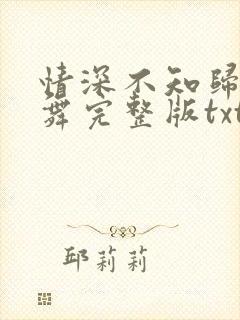 情深不知歸
舞完整版txt
邱莉莉